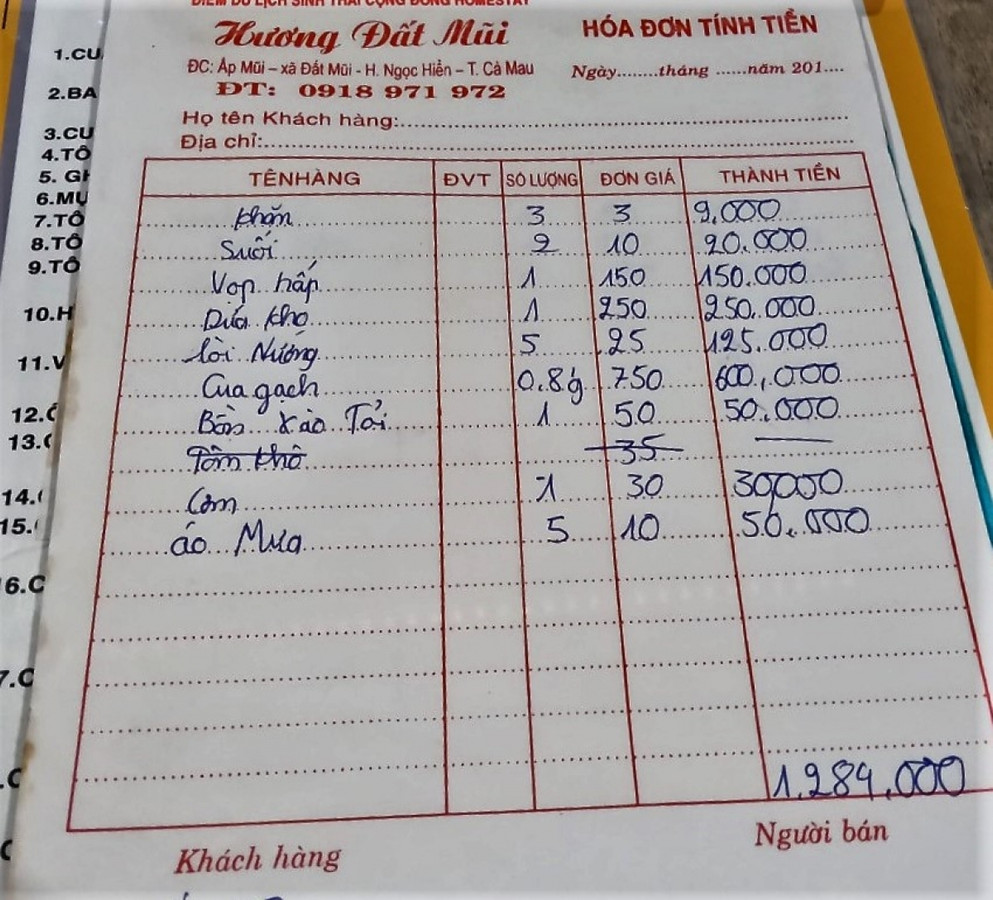 ĐIỂM DU LỊCH SINH THÁI CỘNG ĐỒNG HOMESTAY
Hương Đất Mũi
HÓA ĐƠN TÍNH TIỀN
ĐC: Ấp Mũi – xã Đất Mũi - H. Ngọc Hiển – T. Cà Mau
Ngày........tháng ......năm 201....
ĐT: 0918 971 972
Họ tên Khách hàng:
Địa chỉ:
TÊNHÀNG ĐVT SỐ LƯỢNG ĐƠN GIÁ THÀNH TIỀN
khăn 3 3 9.000
Suối 2 10 20.000
Vop hấp 1 150 150.000
Dứa kho 1 250 250.000
lòi Nướng 5 25 125.000
Cua gạch 0.8 750 600.000
Bồn xào Tỏi 1 50 50.000
Tôm khô 35
Cơm 1 30 30000
áo Mưa 5 10 50.000
1.284.000
Khách hàng
Người bán
1.CU
2.BA
3.CU
4.TÔ
5. GH
6.MỰ
7.TÔ
8.TÔ
9.TÔ
10.H
11.V
12.
13.
14.
15.
16.C
7.C